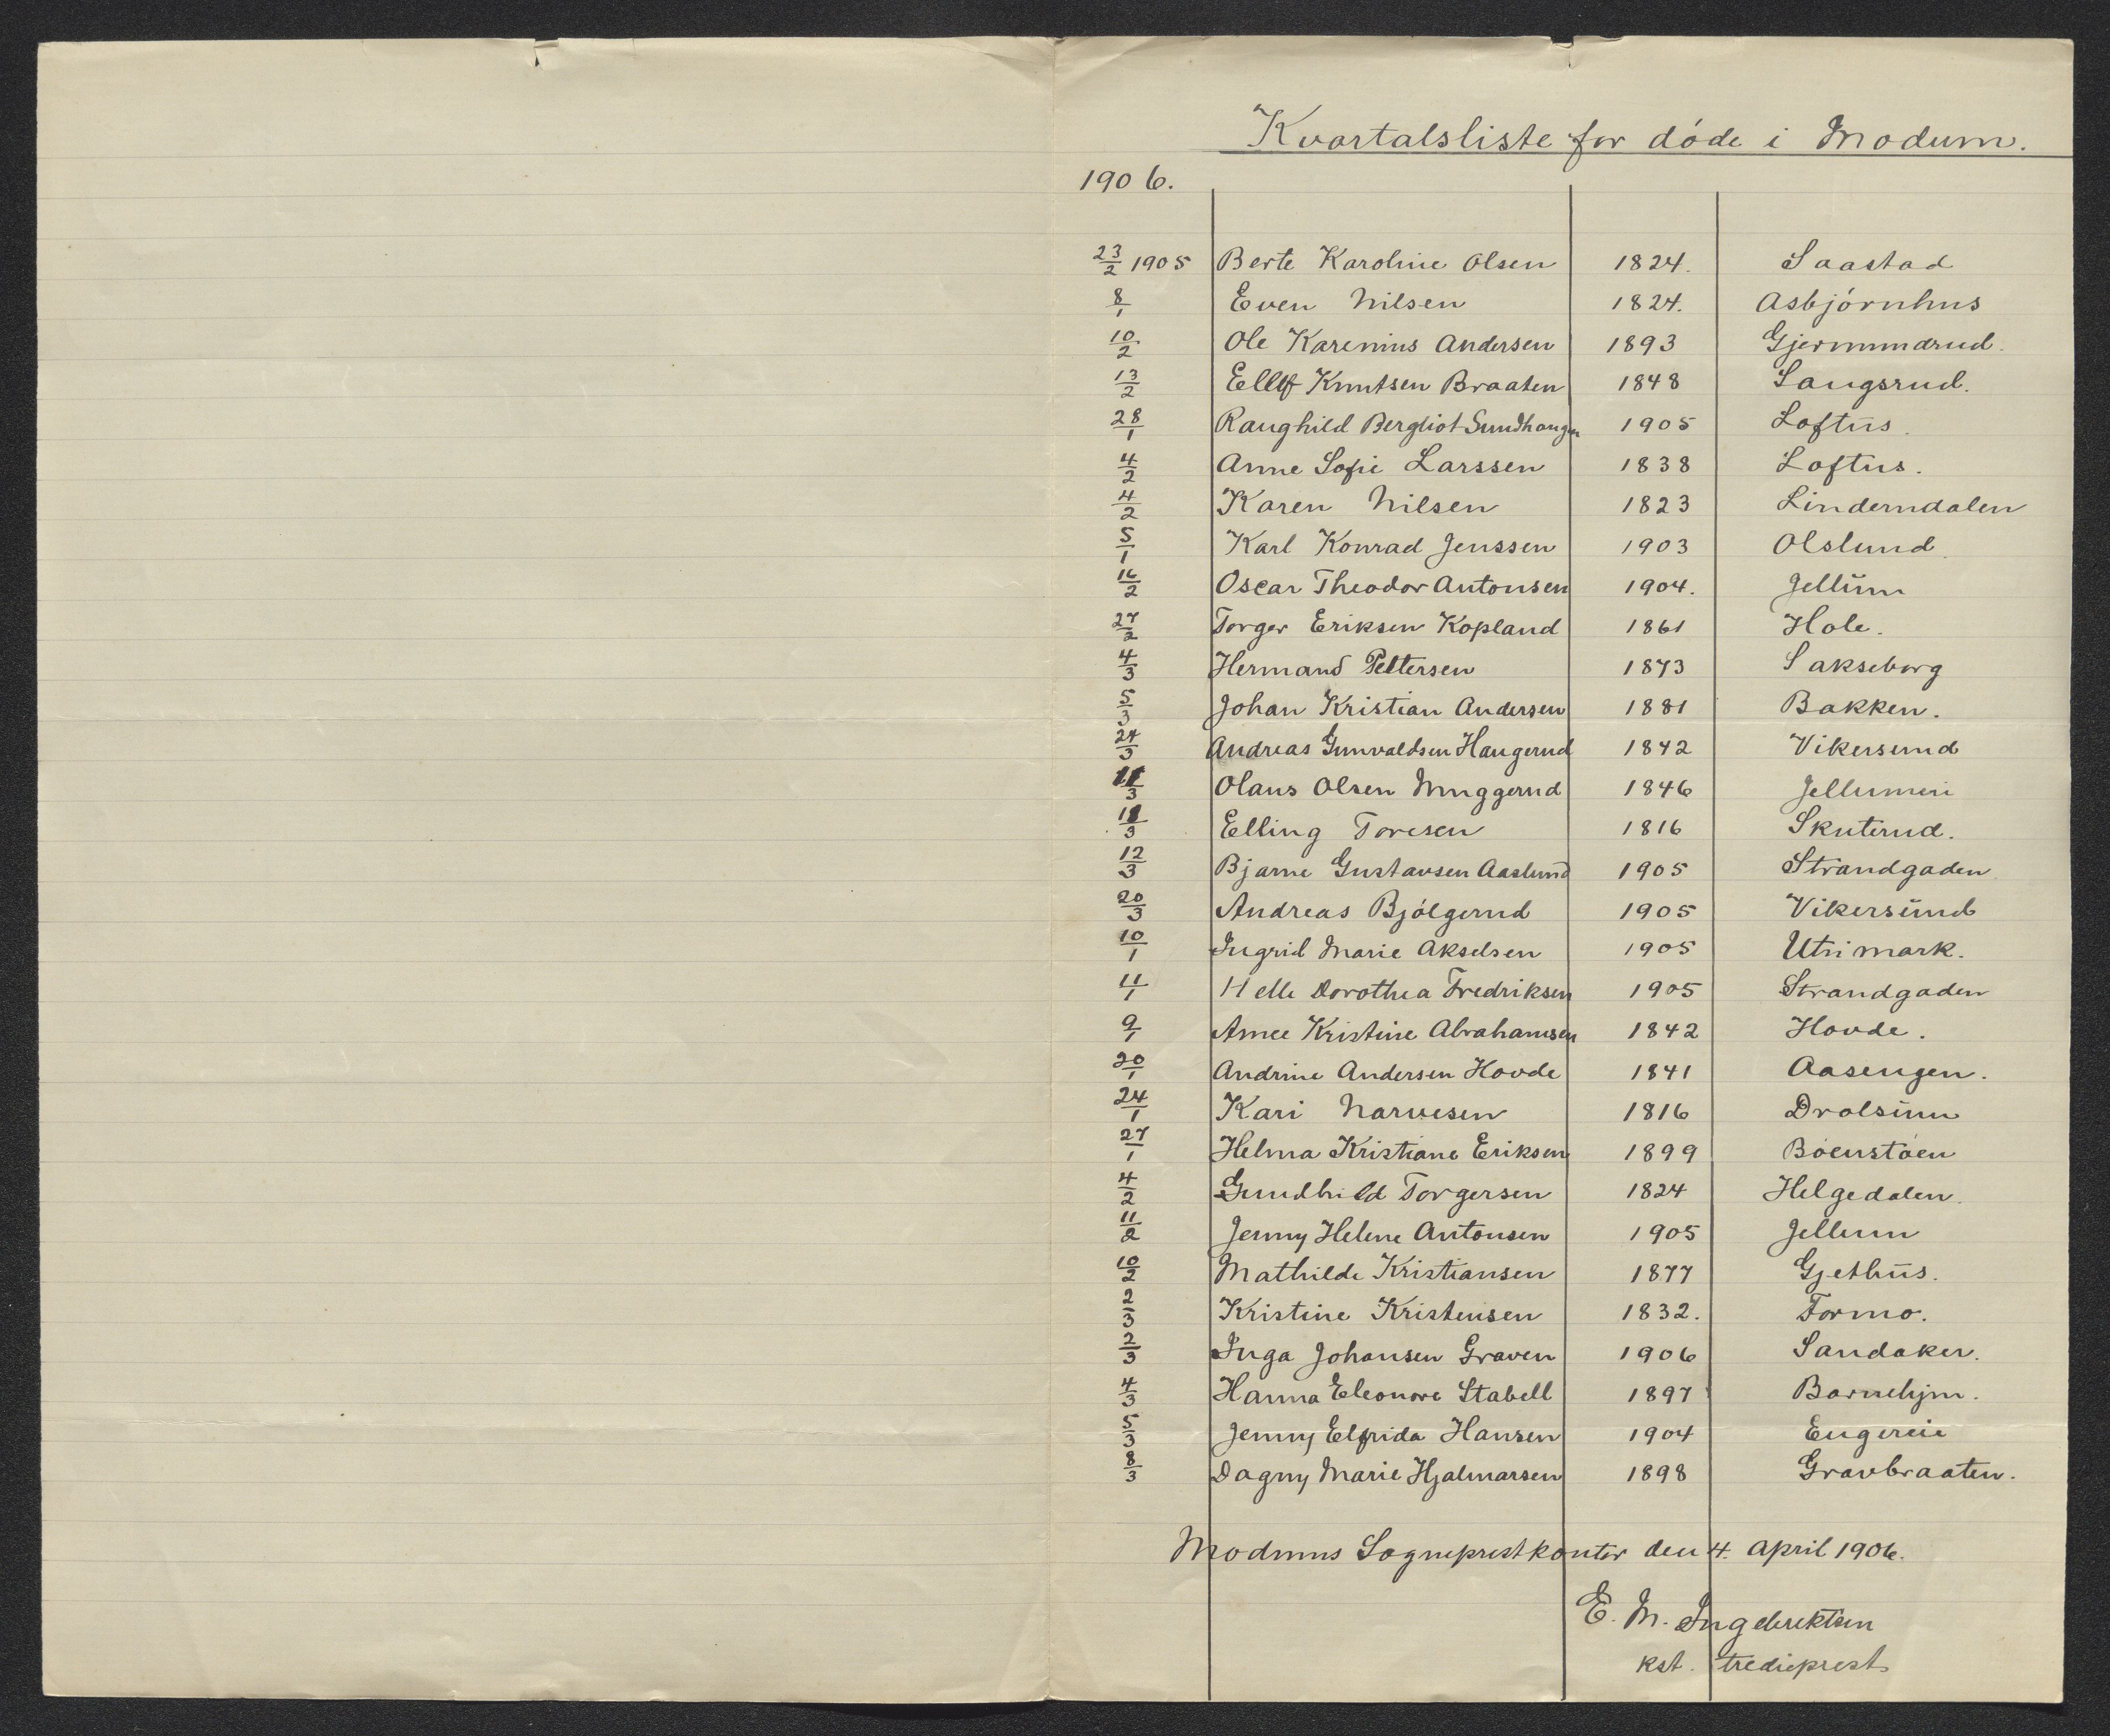 Kvartalsliste for døde i Modum.
1906.
23/2 1905 Berte Karoline Olsen 1824. Saastad
8/1 Even Nilsen 1824. Asbjørnhus
10/2 Ole Karenius Andersen 1893 Gjermundrud.
13/2 Ellef Knutsen Braaten 1848 Langsrud.
28/1 Raughild Bergliot Sundhaugen 1905 Loftus.
4/2 Anne Sofie Larssen 1838 Loftus.
4/2 Karen Nilsen 1823 Linderndalen
5/1 Karl Konrad Jenssen 1903 Olslund
16/2 Oscar Theodor Antonsen 1904. Jellum
27/2 Torger Eriksen Kopland 1861 Hole.
4/3 Hermand Pettersen 1873 Sakseborg
5/3 Johan Kristian Andersen 1881 Bakken.
24/3 Andreas Gunvaldsen Haugerud 1842 Vikersund
11/3 Olaus Olsen Muggerud 1846 Jellumeie
11/3 Elling Toresen 1816 Skuterud.
12/3 Bjarne Gustavsen Aaslund 1905 Strandgaden
20/3 Andreas Bjølgerud 1905 Vikersund
10/1 Ingrid Marie Akselsen 1905 Utnimark.
11/1 Helle Dorothea Fredriksen 1905 Strandgaden
9/1 Anne Kristine Abrahamsen 1842 Hovde.
20/1 Andrine Andersen Hovde 1841 Aasengen.
24/1 Kari Narvesen 1816 Drolsum
27/1 Helma Kristiane Eriksen 1899 Bøenstøen
4/2 Gundhild Torgersen 1824 Helgedalen.
11/2 Jenny Helene Antonsen 1905 Jellum
10/2 Mathilde Kristiansen 1877 Gjethus.
2/3 Kristine Kristensen 1832. Formo.
2/3 Inga Johansen Graven 1906 Sandaker.
4/3 Hanna Eleonore Stabell 1897 Barnehjm.
5/3 Jenny Elfrida Hansen 1904 Engereie
8/3 Dagny Marie Hjalmarsen 1898 Gravbraaten.
Modums Sogneprestkontor den 4. April 1906.
E. M. Ingebrektsen
kst. tredieprest